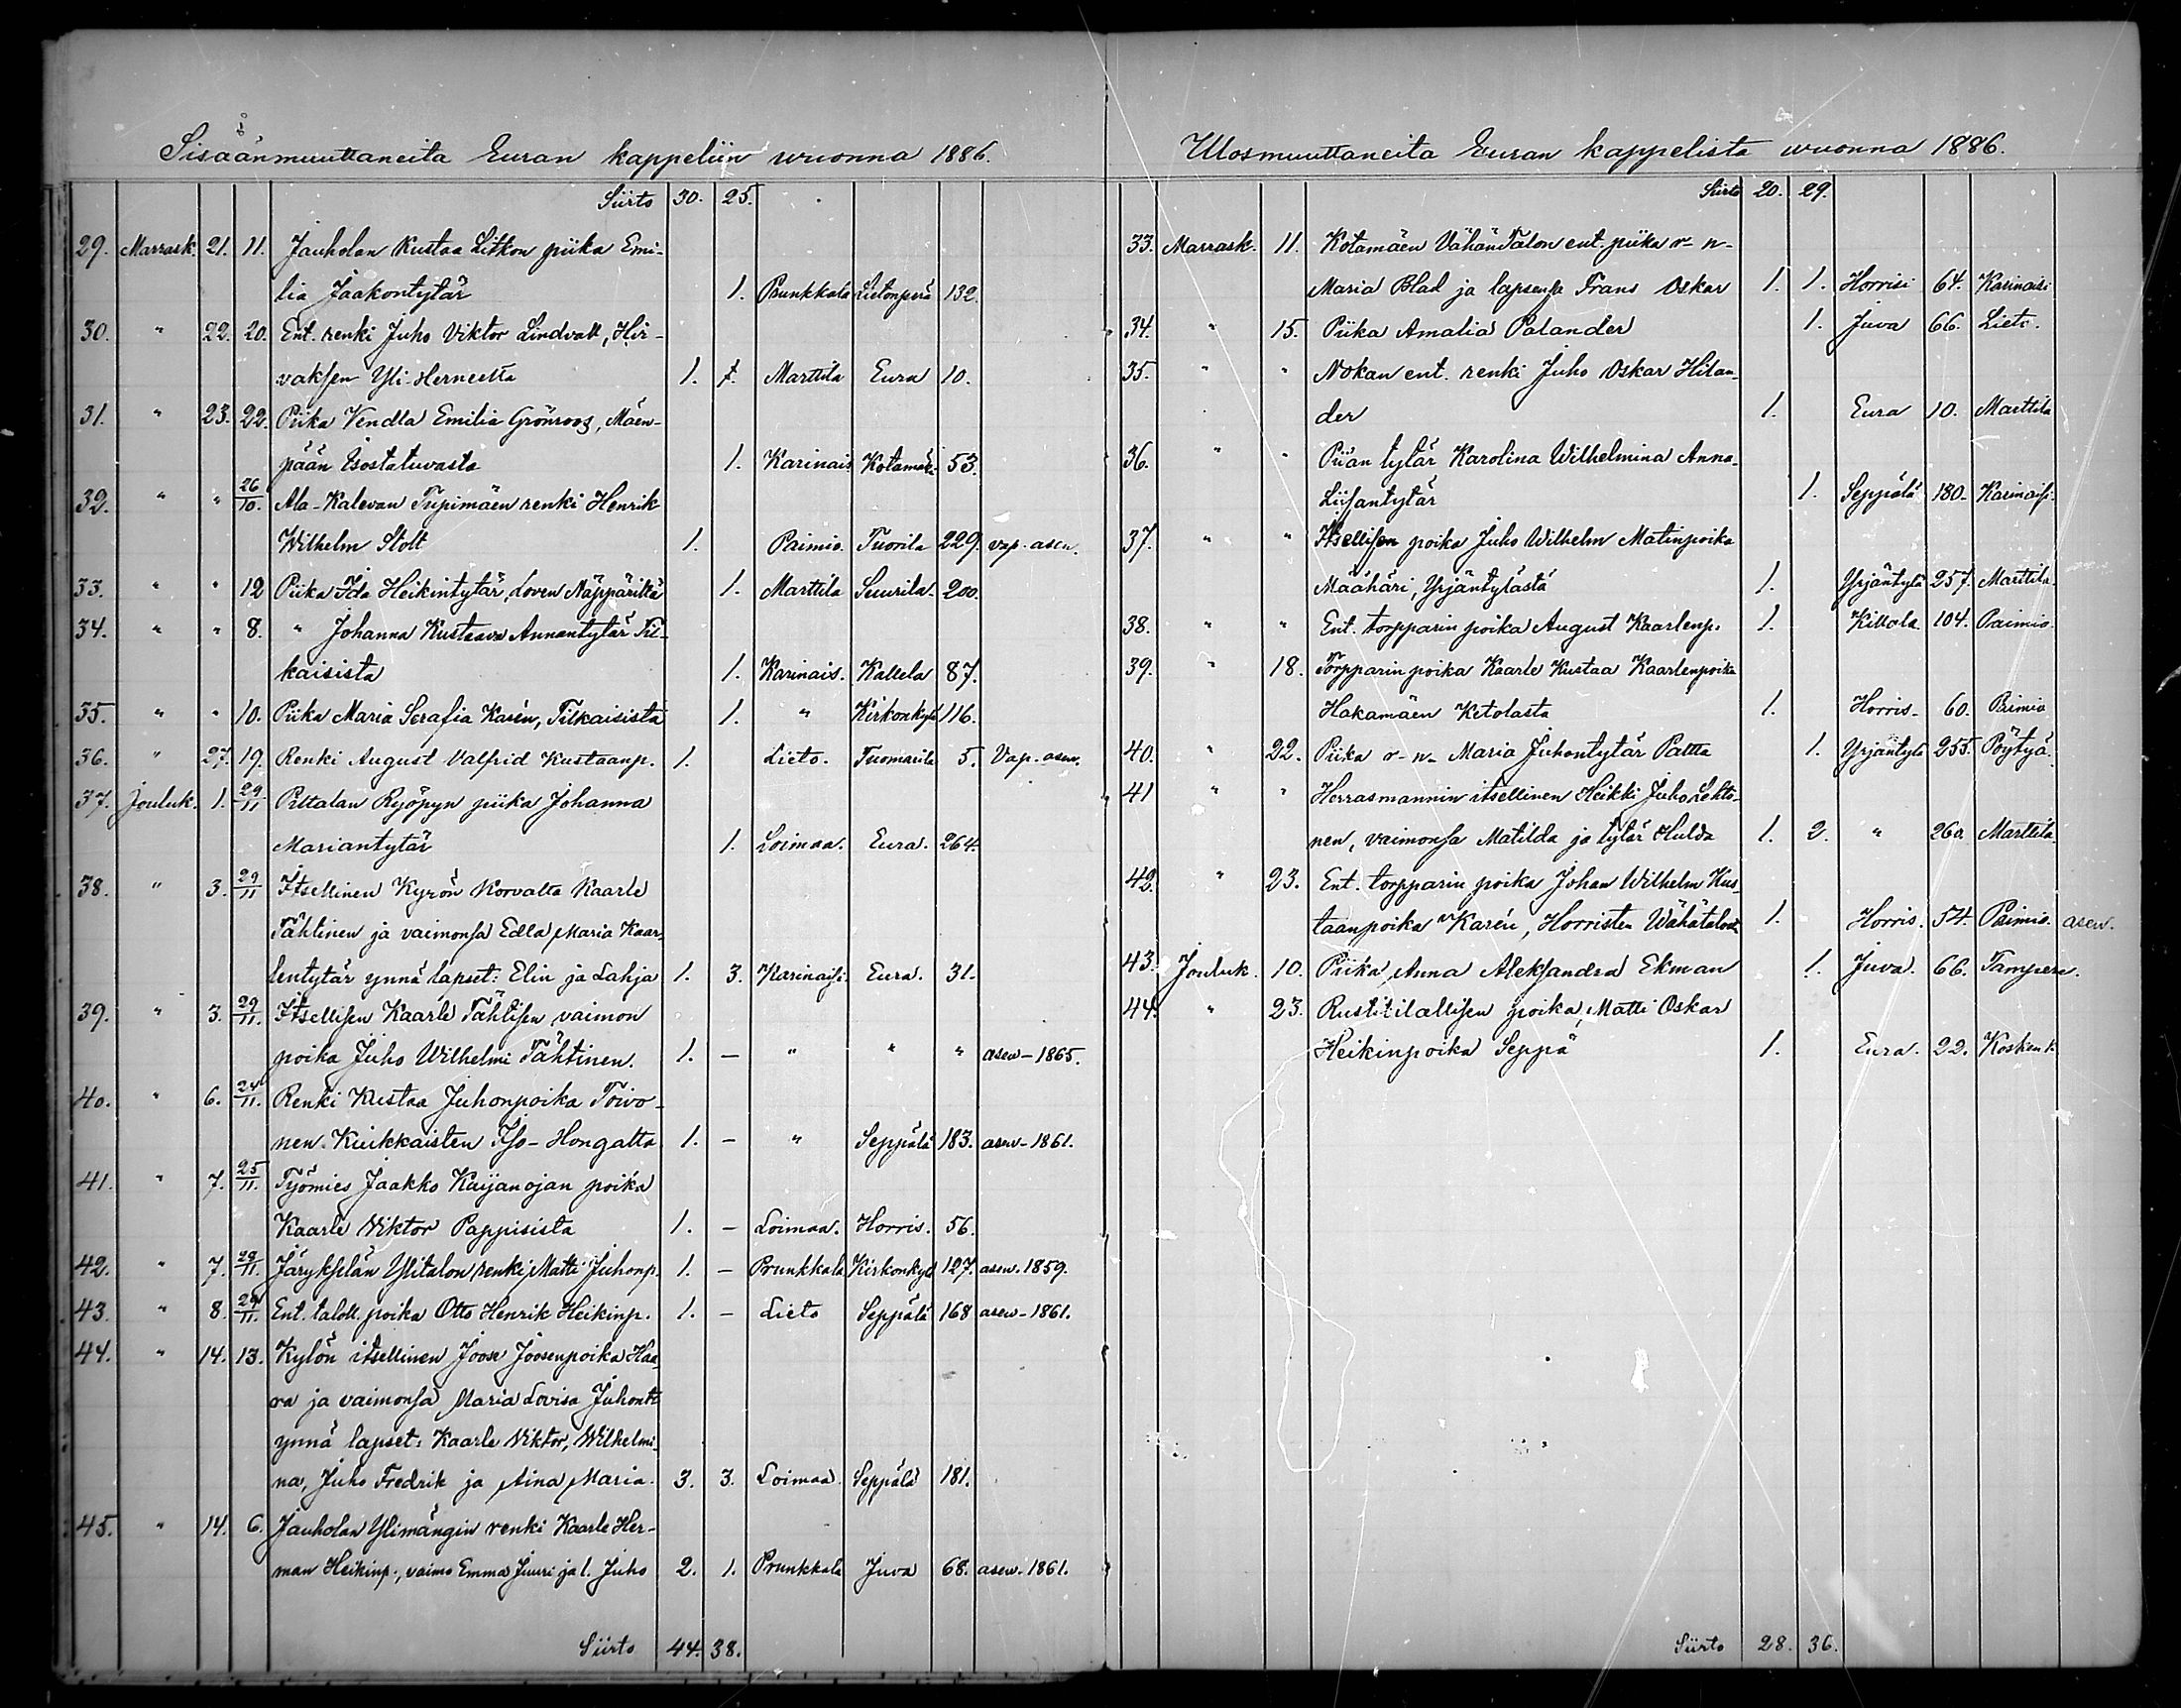 Sisäänmuuttaneita Euran kappeliin vuonna 1886.
Siirto 30. 25.
29. Marrask. 21. 11. Jauholan Kustaa Litkon piika Emi-
lia Jaakontytär 1. Prunkkala Lietonperä 132.
30. " 22. 20. Ent. renki Juho Viktor Lindvall, Hir-
vaksen Yli-Herneelta 1. Marttila Eura 10.
31. " 23. 22. Piika Vendla Emilia Grönroos, Mäen-
pään Isostatuvasta 1. Karinais Kotamäki 53.
32. " " 26/10. Ala-Kalevan Tupimäen renki Henrik
Wilhelm Stolt 1. Paimio. Tuorila 229. vap. asev.
33. " " 12 Piika Ida Heikintytär, Loven Näppäriltä 1. Marttila Suurila. 200.
34. " " 8. " Johanna Kustaava Annantytär Til-
kaisista 1. Karinais. Kallela 87.
35. " " 10. Piika Maria Serafia Karén, Tilkaisista 1. " Kirkonkylä 116.
36. " 27. 19. Renki August Valfrid Kustaanp. 1. Lieto. Tuomarila 5. Vap. asev.
37. Jouluk. 1. 29/11 Piltalan Ryöpyn piika Johanna
Mariantytär 1. Loimaa. Eura. 264.
38. " 3. 29/11 Itsellinen Kyrön Korvalta Kaarle
Tähtinen ja vaimonsa Edla Maria Kaar-
lentytär ynnä lapset: Elin ja Lahja 1. 3. Karinaisi. Eura. 31.
39. " 3. 29/11. Itsellisen Kaarle Tähtisen vaimon
poika Juho Wilhelmi Tähtinen. 1. – " " " asev–1865.
40. " 6. 24/11. Renki Kustaa Juhonpoika Toivo-
nen. Kuikkaisten Iso-Hongalta 1. – " Seppälä 183. asev–1861.
41. " 7. 25/11. Työmies Jaakko Kaijanojan poika
Kaarle Viktor Pappisista 1. – Loimaa. Horris. 56.
42. " 7. 29/11. Järykselän Ylitalon renki Matti Juhonp. 1. – Prunkkala Kirkonkylä 127. asev. 1859.
43. " 8. 29/11. Ent. taloll. poika Otto Henrik Heikinp. 1. – Lieto Seppälä 168 asev–1861.
44. " 14. 13. Kylön itsellinen Joose Joosenpoika Haa-
ra ja vaimonsa Maria Lovisa Juhont.
ynnä lapset: Kaarle Viktor, Wilhelmi-
na, Juho Fredrik ja Aina Maria. 3. 3. Loimaa. Seppälä 181.
45. " 14. 6. Jauholan Ylimängin renki Kaarle Her-
man Heikinp., vaimo Emma Juuri ja l. Juho 2. 1. Prunkkala Juva 68. asev. 1861.
Siirto 44. 38.
Ulosmuuttaneita Euran kappelista vuonna 1886.
Siirto 20. 29.
33. Marrask. 11. Kotamäen Vähän Talon ent. piika r- n-
Maria Blad ja lapsensa Frans Oskar 1. 1. Horrisi 64. Karinaisi
34. " 15. Piika Amalia Palander 1. Juva 66. Lieto.
35. " " Nokan ent. renki Juho Oskar Hilan-
der 1. Eura 10. Marttila
36. " " Piian tytär Karolina Wilhelmina Anna-
Liisantytär 1. Seppälä 180. Karinaisi.
37. " " Itsellisen poika Juho Wilhelm Matinpoika
Määhäri, Yrjäntylästä 1. Yrjäntylä 257. Marttila.
38. " " Ent. torpparin poika August Kaarlenp. 1. Killala. 104. Paimio.
39. " 18. Torpparin poika Kaarle Kustaa Kaarlenpoika
Hakamäen Ketolasta 1. Horris- 60. Paimio
40. " 22. Piika r- n- Maria Juhontytär Paltta 1. Yrjäntylä 255. Pöytyä.
41 " " Herrasmannin itsellinen Heikki Juho Lehto-
nen, vaimonsa Matilda ja tytär Hulda 1. 2. " 260. Marttila.
42. " 23. Ent. torpparin poika Johan Wilhelm Kus-
taanpoika Karén, Horristen Wähätalosta 1. Horris. 54. Paimio. asev.
43. Jouluk. 10. Piika Anna Aleksandra Ekman 1. Juva. 66. Tampere.
44. " 23. Rustitilallisen poika Matti Oskar
Heikinpoika Seppä 1. Eura. 22. Kosken k.
Siirto 28. 36.